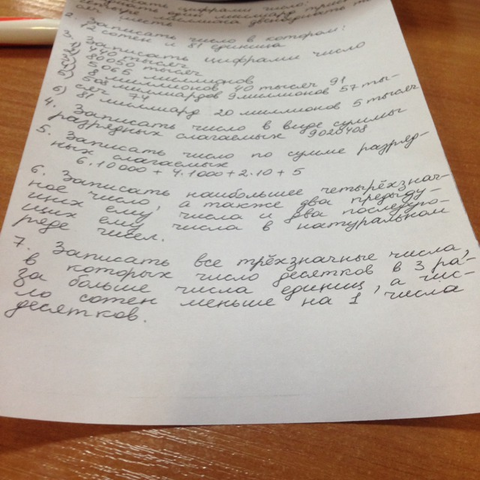 записать цифрами число:
один миллиард
2. Записать число в котором:
2 сотен и 81 единица
3. Записать цифрами число
440 тысяч
80050 тысяч
5065 миллионов
8 миллионов 40 тысяч 91
508 миллиардов 9 миллионов 57 ты-
сяч 74
б) 81 миллиард 20 миллионов 5 тысяч
4. Записать число в виде суммы
разрядных слагаемых 9020408
5. Записать число по сумме разряд-
ных слагаемых
6·10000+4·1000+2·10+5
6. Записать наибольшее четырёхзнач-
ное число, а также два предыду-
щих ему числа и два последую-
щих ему числа в натуральном
ряде чисел.
7. Записать все трёхзначные числа,
в которых число десятков в 3 ра-
за больше числа единиц, а чис-
ло сотен меньше на 1 числа
десятков.